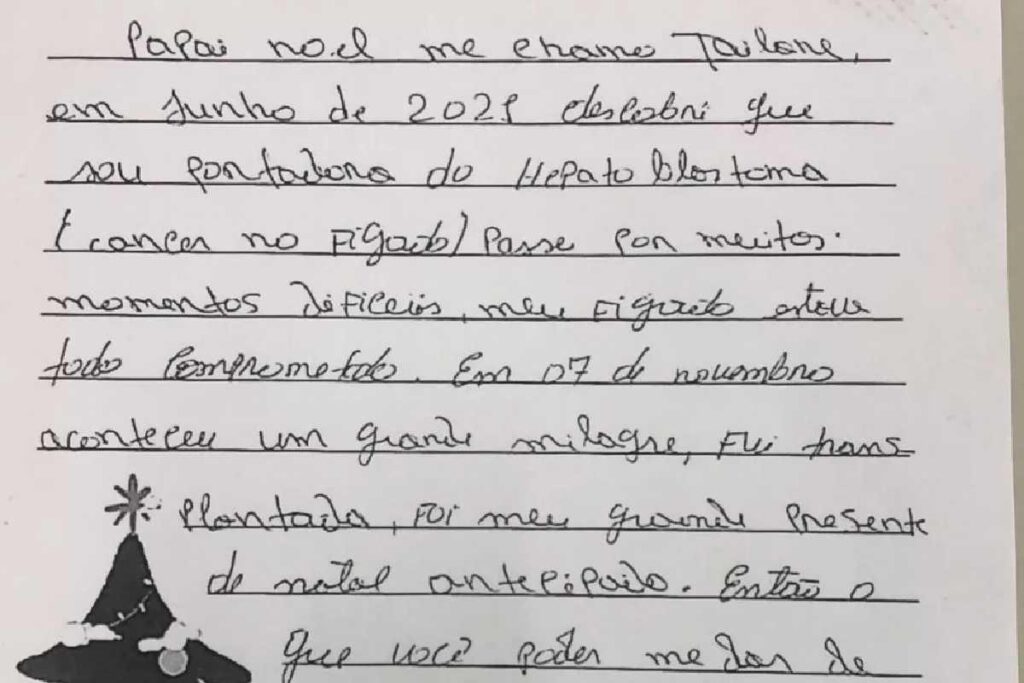 Papai noel me chamo Tailane,
em Junho de 2021 descobri que
sou portadora do Hepato blastoma
(cancer no Figado) Passe por muitos
momentos dificeis, meu Figado estava
todo comprometido. Em 07 de novembro
aconteceu um grande milagre, Fui trans
plantada, Foi meu grande Presente
de natal antecipado. Então o
que você poder me dar de